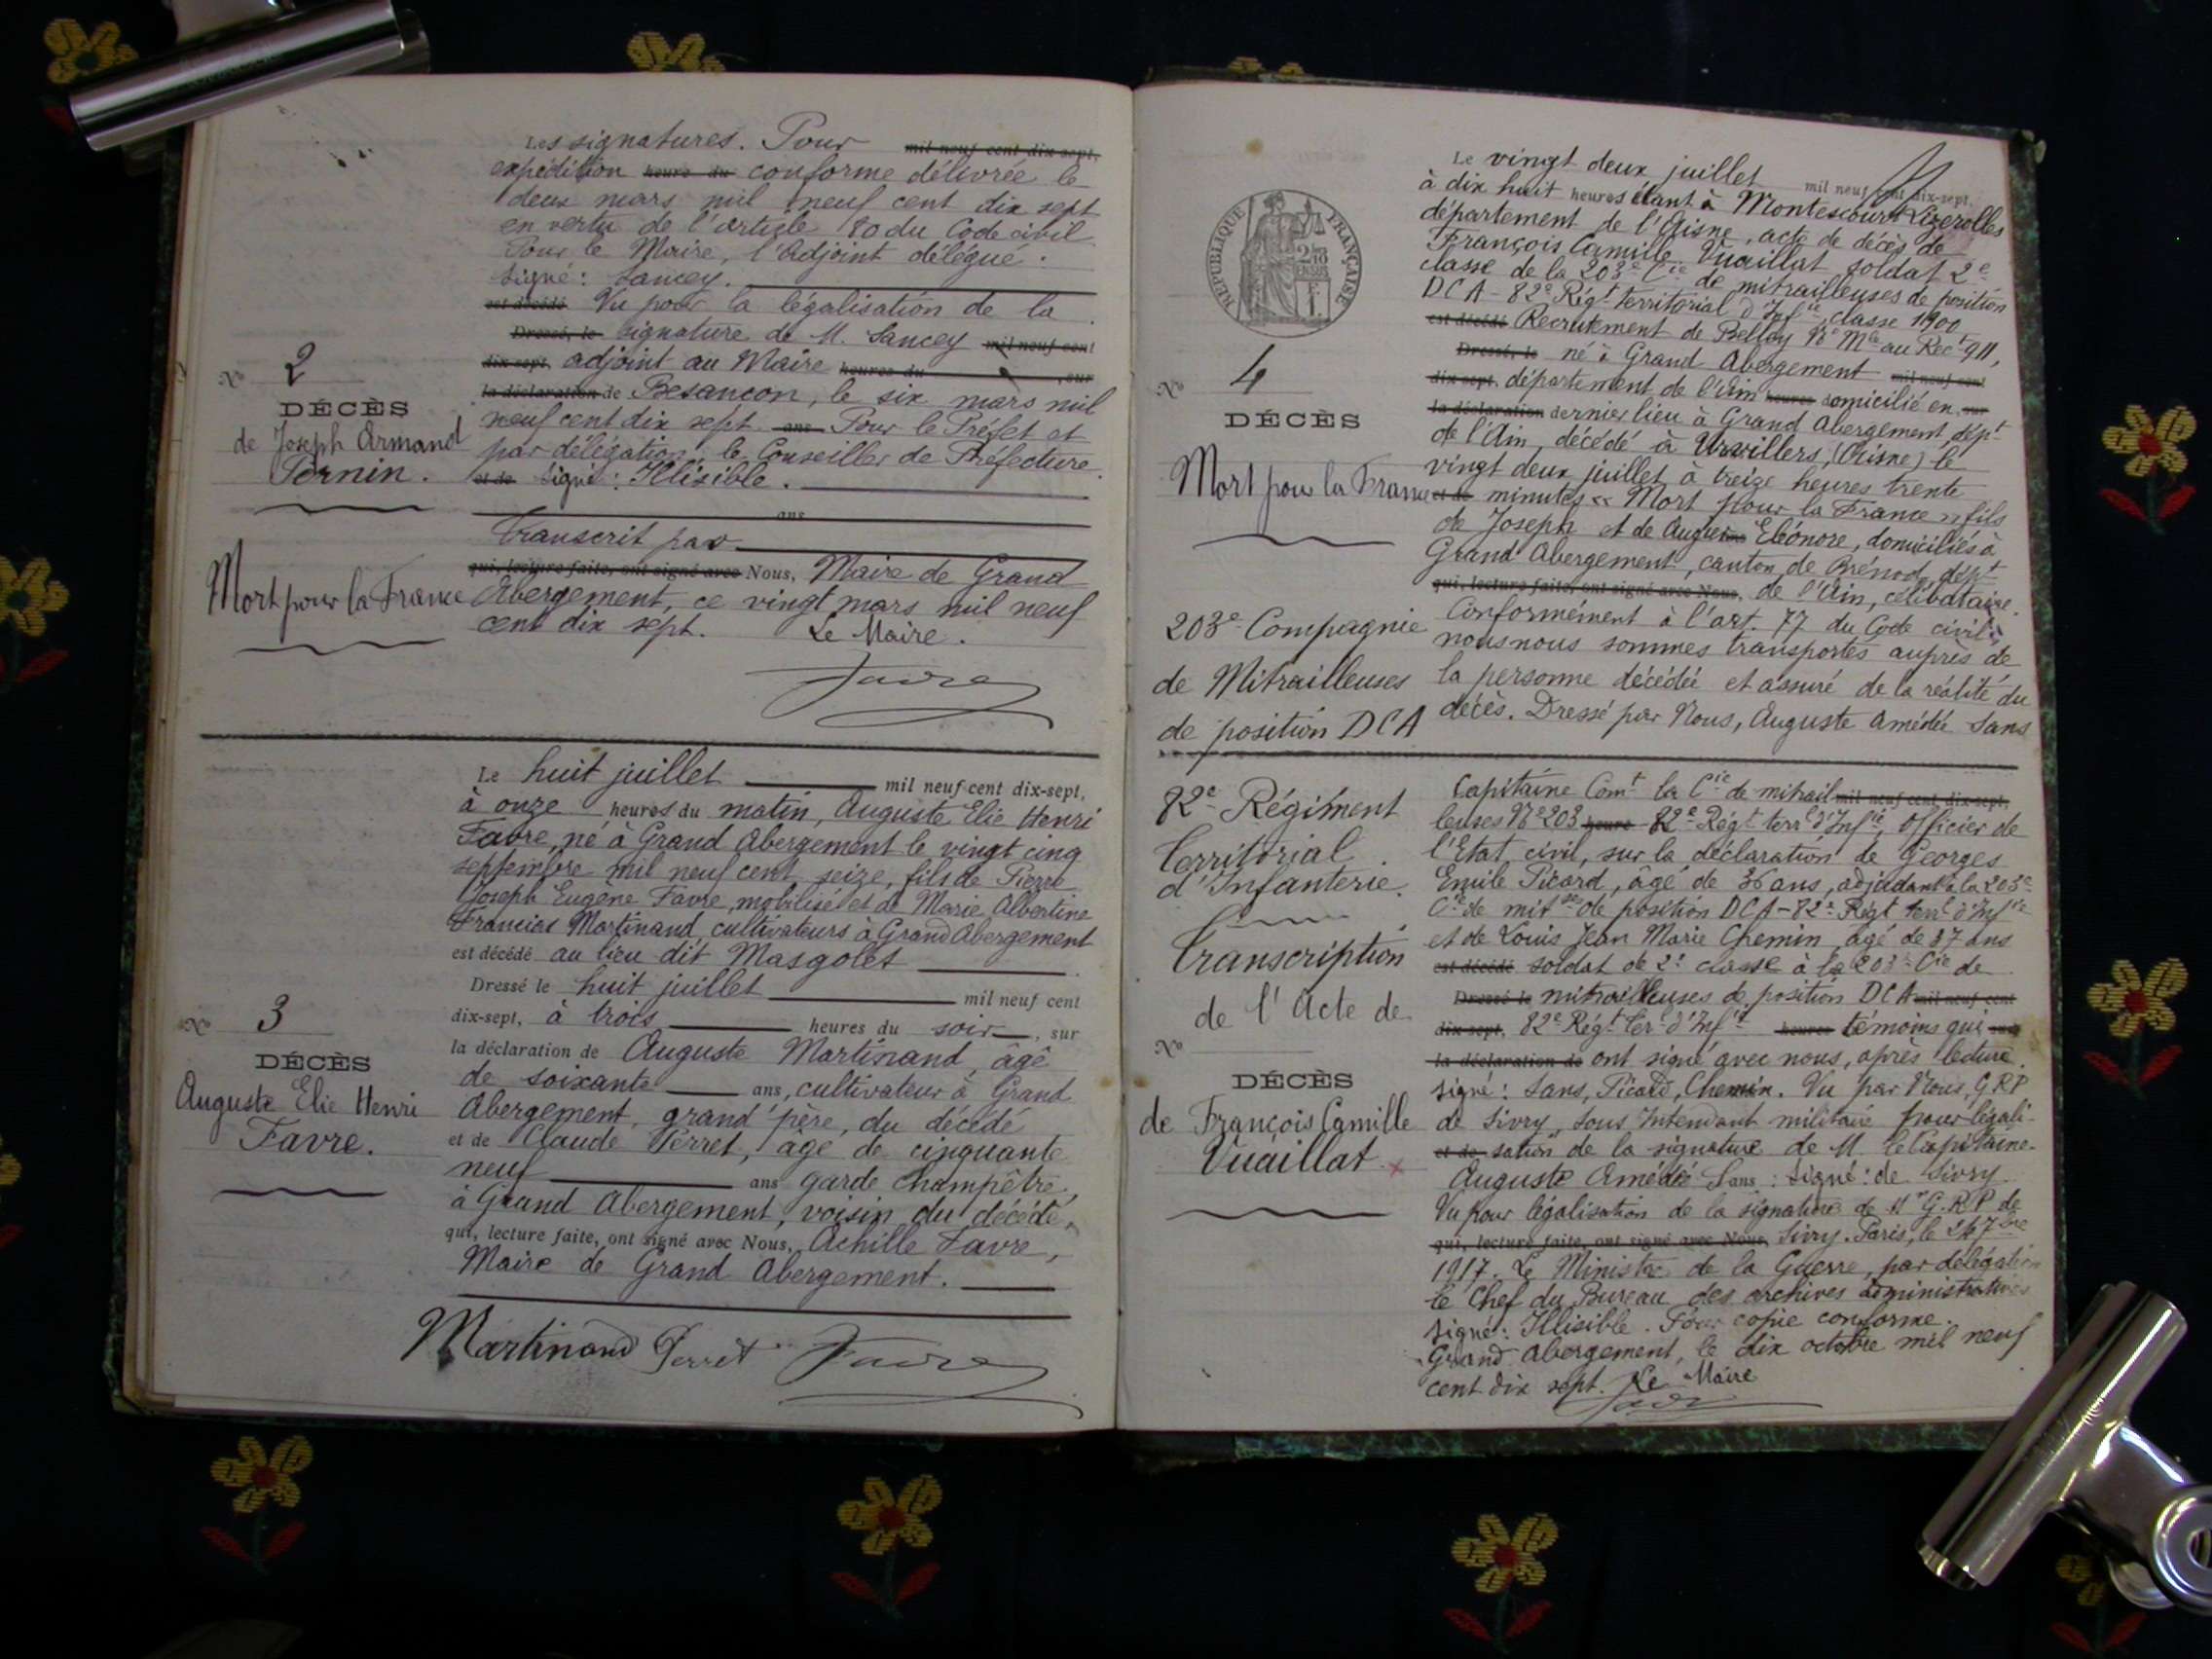 Les signatures. Pour mil neuf cent dix-sept,
expédition heure du conforme délivrée le
deux mars mil neuf cent dix sept
en vertu de l'article 80 du Code civil
Pour le Maire, l'Adjoint délégué.
Signé: Sancey.
est décédé Vu pour la légalisation de la
Dressé, le signature de M. Sancey mil neuf cent
dix-sept, adjoint au Maire heures du , sur
la déclaration de Besançon, le six mars mil
neuf cent dix sept. ans Pour le Préfet et
par délégation, le Conseiller de Préfecture.
et de Signé: Illisible.
ans
Transcrit par
qui, lecture faite, ont signé avec Nous, Maire de Grand
Abergement, ce vingt mars mil neuf
cent dix sept. Le Maire.
Favre
No 2
DÉCÈS
de Joseph Armand
Pernin.
Mort pour la France
Le huit juillet mil neuf cent dix-sept,
à onze heures du matin, Auguste Elie Henri
Favre, né à Grand Abergement le vingt cinq
septembre mil neuf cent seize, fils de Pierre
Joseph Eugène Favre, mobilisé et de Marie Albertine
Francias Martinand, cultivateurs à Grand Abergement
est décédé au lieu dit Masgolet
Dressé le huit juillet mil neuf cent
dix-sept, à trois heures du soir, sur
la déclaration de Auguste Martinand, âgé
de soixante ans, cultivateur à Grand
Abergement, grand'père, du décédé
et de Claude Perret, âgé de cinquante
neuf ans garde champêtre,
à Grand Abergement, voisin du décédé,
qui, lecture faite, ont signé avec Nous, Achille Favre,
Maire de Grand Abergement.
Martinand Perret Favre
No 3
DÉCÈS
Auguste Elie Henri
Favre.
RÉPUBLIQUE FRANÇAISE
2/10 EN SUS
Le vingt deux juillet mil neuf cent dix-sept,
à dix huit heures étant à Montescourt Lizerolles
département de l'Aisne, acte de décès de
François Camille Vuaillat soldat 2e
classe de la 203e Cie de mitrailleuses de position
DCA - 82e Régt territorial d'Infie, classe 1900
est décédé Recrutement de Belley No Mle au Rect 911,
Dressé, le né à Grand Abergement mil neuf cent
dix-sept, département de l'Ain heures domicilié en sur
la déclaration dernier lieu à Grand Abergement, dépt
de l'Ain, décédé à Urvillers, (Aisne) le
vingt deux juillet à treize heures trente
et de minutes « Mort pour la France » fils
de Joseph et de Eléonore, domiciliés à
Grand Abergement, canton de Brénod, dépt
qui, lecture faite, ont signé avec Nous, de l'Ain, célibataire.
Conformément à l'art. 77 du Code civil,
nous nous sommes transportés auprès de
la personne décédée et assuré de la réalité du
décès. Dressé par Nous, Auguste Amédée Sans
No 4
DÉCÈS
Mort pour la France
203e Compagnie
de Mitrailleuses
de position DCA
82e Régiment
Territorial
d'Infanterie.
Transcription
de l'Acte de
No
DÉCÈS
de François Camille
Vuaillat
Capitaine Comt la Cie de mitrail mil neuf cent dix-sept,
leuses No 203 heure 82e Régt terrl d'Infie, Officier de
l'Etat civil, sur la déclaration de Georges
Emile Picard, âgé de 36 ans, adjudant à la 203e
Cie de mitses de position DCA - 82e Régt terrl d'Infie
et de Louis Jean Marie Chemin, âgé de 37 ans
est décédé soldat de 2e classe à la 203e Cie de
Dressé le mitrailleuses de position DCA mil neuf cent
dix-sept, 82e Régt Terl d'Infie heures témoins qui sur
la déclaration de ont signé avec nous, après lecture.
Signé: Sans, Picard, Chemin. Vu par Nous, GRP
de Sivry, Sous Intendant militaire pour légali-
et de sation de la signature de M. le Capitaine
Auguste Amédée Sans: Signé: de Sivry.
Vu pour légalisation de la signature de Mr G.R.P de
qui, lecture faite, ont signé avec Nous, Sivry. Paris, le 24 7bre
1917. Le Ministre de la Guerre, par délégation
le Chef du Bureau des archives administratives
Signé: Illisible. Pour copie conforme.
Grand Abergement, le dix octobre mil neuf
cent dix sept. Le Maire
Favre